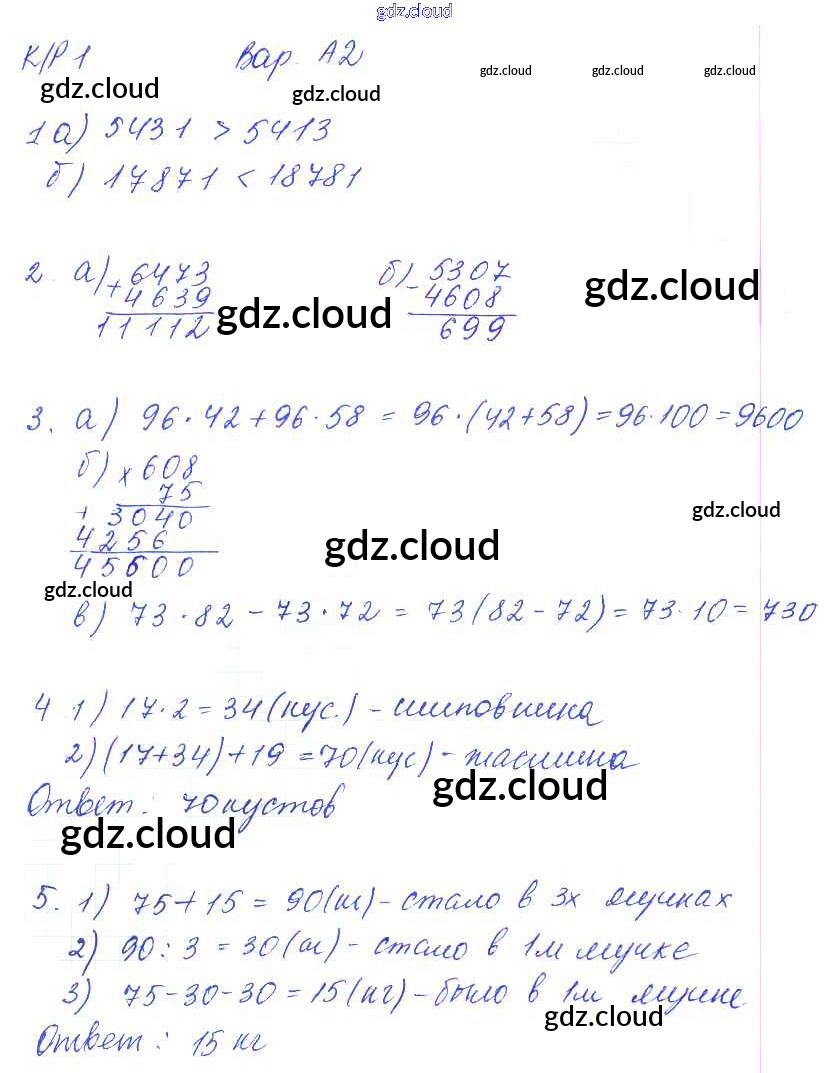 gdz.cloud
К/Р 1 Вар. А2
gdz.cloud gdz.cloud gdz.cloud
gdz.cloud gdz.cloud
1 а) 5431 > 5413
б) 17871 < 18781
2. а) + 6473 б) - 5307
4639 4608
11112 699
gdz.cloud gdz.cloud
3. а) 96·42+96·58 = 96·(42+58)=96·100=9600
б) × 608
75
+ 3040
4256
45600
gdz.cloud
gdz.cloud
gdz.cloud
в) 73·82 - 73·72 = 73(82-72)=73·10=730
4 1) 17·2=34(кус.) - шиповника
2)(17+34)+19=70(кус) - жасмина
gdz.cloud
Ответ: 70 кустов
gdz.cloud
5. 1) 75+15 = 90(кг) - стало в 3х мешках
2) 90:3 = 30(кг) - стало в 1м мешке
3) 75-30-30=15(кг) - было в 1м мешке
gdz.cloud
Ответ: 15 кг